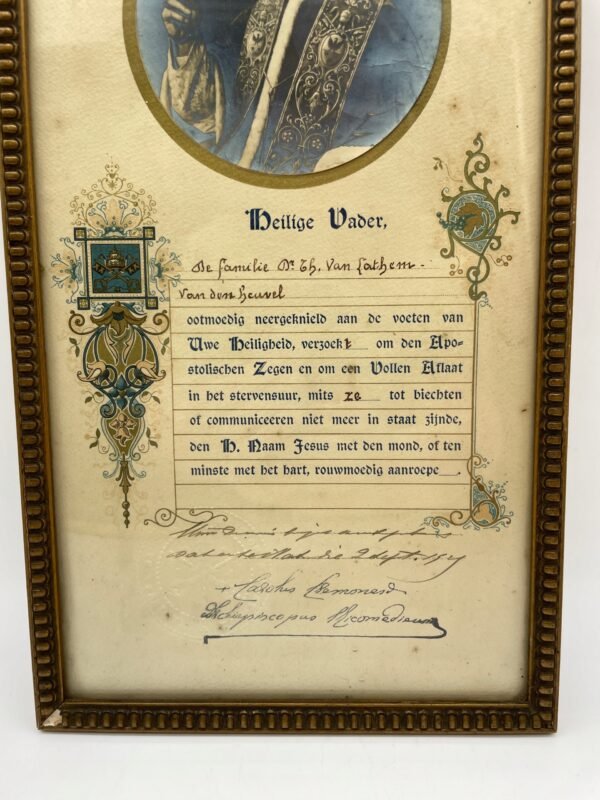 Heilige Vader,
De familie Dr Th. Van Lathem-
Van den heuvel
ootmoedig neergeknield aan de voeten van
Uwe Heiligheid, verzoekt om den Apo-
stolischen Zegen en om een Vollen Aflaat
in het stervensuur, mits ze tot biechten
of communiceeren niet meer in staat zijnde,
den H. Naam Jesus met den mond, of ten
minste met het hart, rouwmoedig aanroepe
die 2 sept.
+ Carolus
Archiepiscopus Nicomediensis